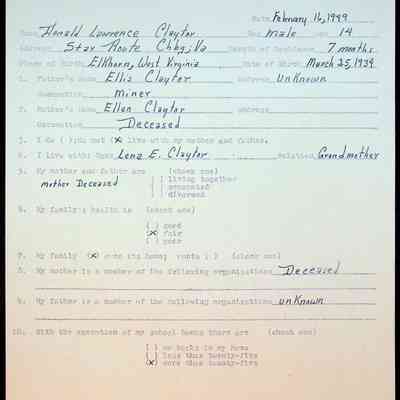 Date February 16, 1949
Name Donald Lawrence Claytor Sex Male Age 14
Address Star Route Chbg; Va Length of Residence 7 months
Place of Birth Elkhorn, West Virginia Date of Birth March 25, 1934
1. Father's Name Ellis Claytor Address unknown
Occupation miner
2. Mother's Name Ellen Claytor Address
Occupation Deceased
3. I do ( ) do not (x) live with my mother and father.
4. I live with: Name Lena E. Claytor Relation Grandmother
5. My mother and father are (check one)
mother Deceased ( ) living together
( ) separated
( ) divorced
6. My family's health is (check one)
( ) good
(x) fair
( ) poor
7. My family (x) owns its home; rents ( ) (check one)
8. My mother is a member of the following organizations Deceased
9. My father is a member of the following organizations unknown
10. With the exception of my school books there are (check one)
( ) no books in my home
( ) less than twenty-five
(x) more than twenty-five